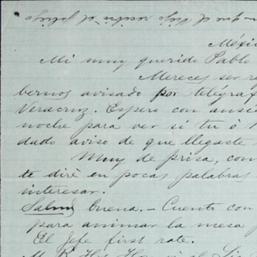 Méxi
Mi muy querido Pablo
Mereces ser re
bernos avisado por telégraf
Veracruz. Espero con ansi
noche para ver si tú ó
dado aviso de que llegaste
Muy de prisa, com
te diré en pocas palabras
interesar.
Salud buena. – Cuento con
para animar la mesa
El Jefe first rate.